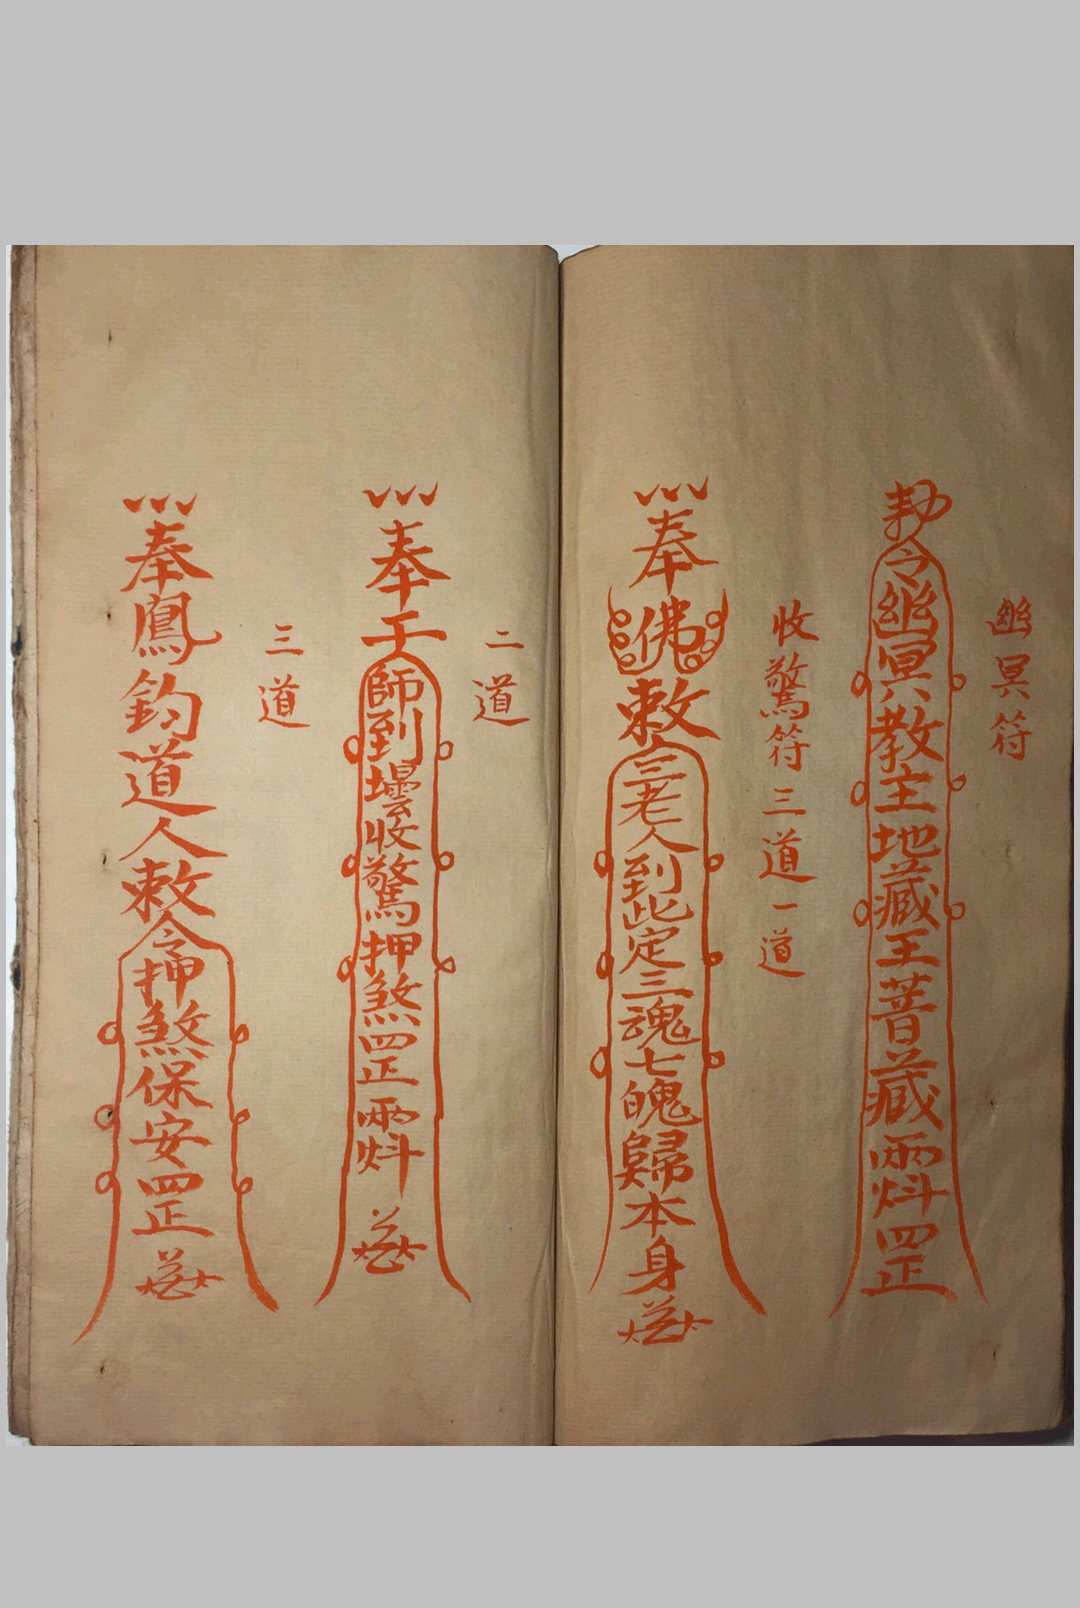 幽冥符
勅令幽冥教主地藏王菩薩雨斗罡
收驚符三道一道
奉佛敕令三老人到此定三魂七魄歸本身
二道
奉天師到壇收驚押煞罡
三道
奉鳳鈞道人敕令押煞保安罡